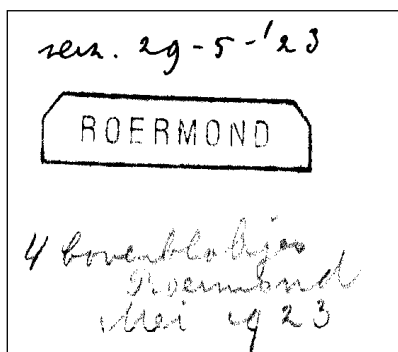 verz. 29-5-'23
ROERMOND
4 bovenblokjes
Roermond
Mei 1923